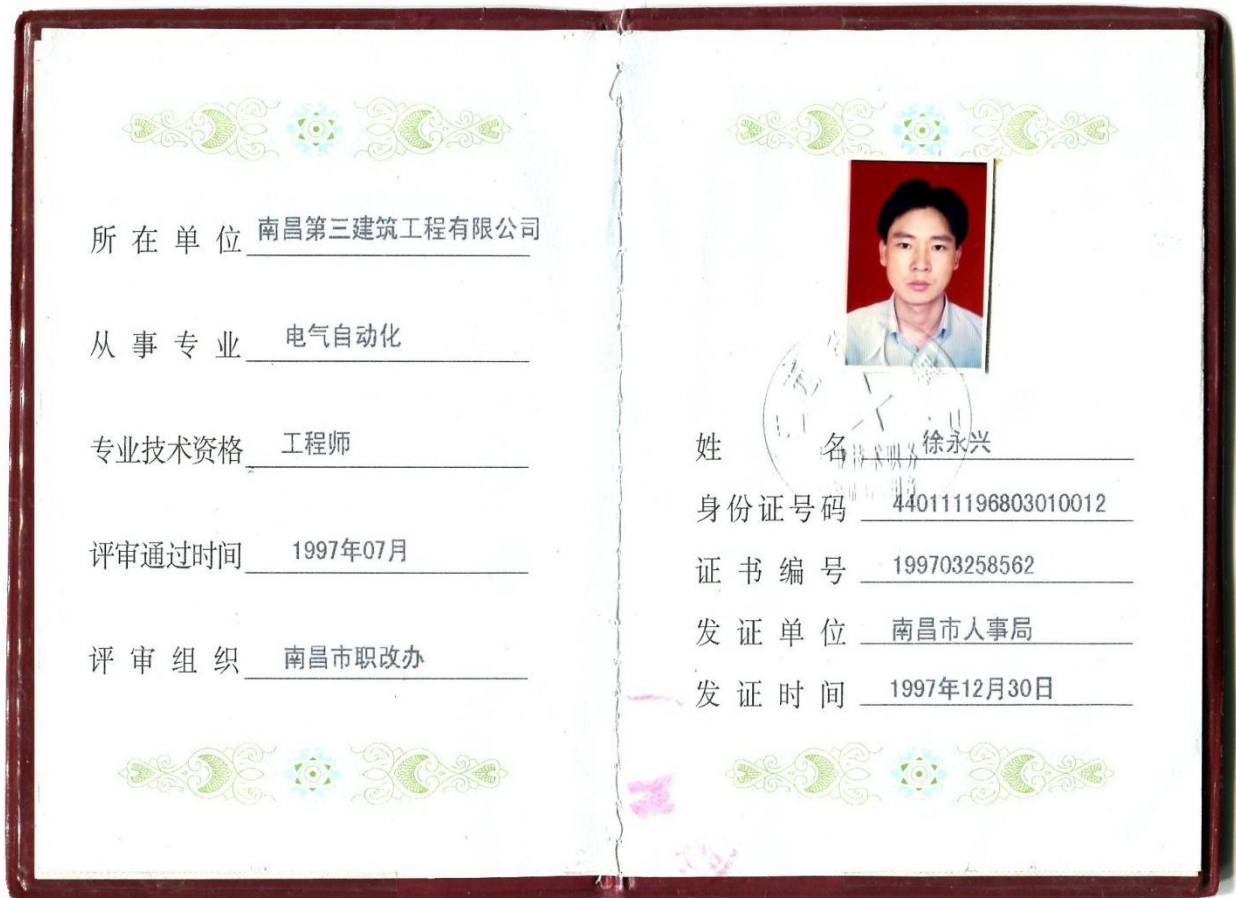 所在单位 南昌第三建筑工程有限公司
从事专业 电气自动化
专业技术资格 工程师
评审通过时间 1997年07月
评审组织 南昌市职改办
姓名 徐永兴
身份证号码 440111196803010012
证书编号 199703258562
发证单位 南昌市人事局
发证时间 1997年12月30日